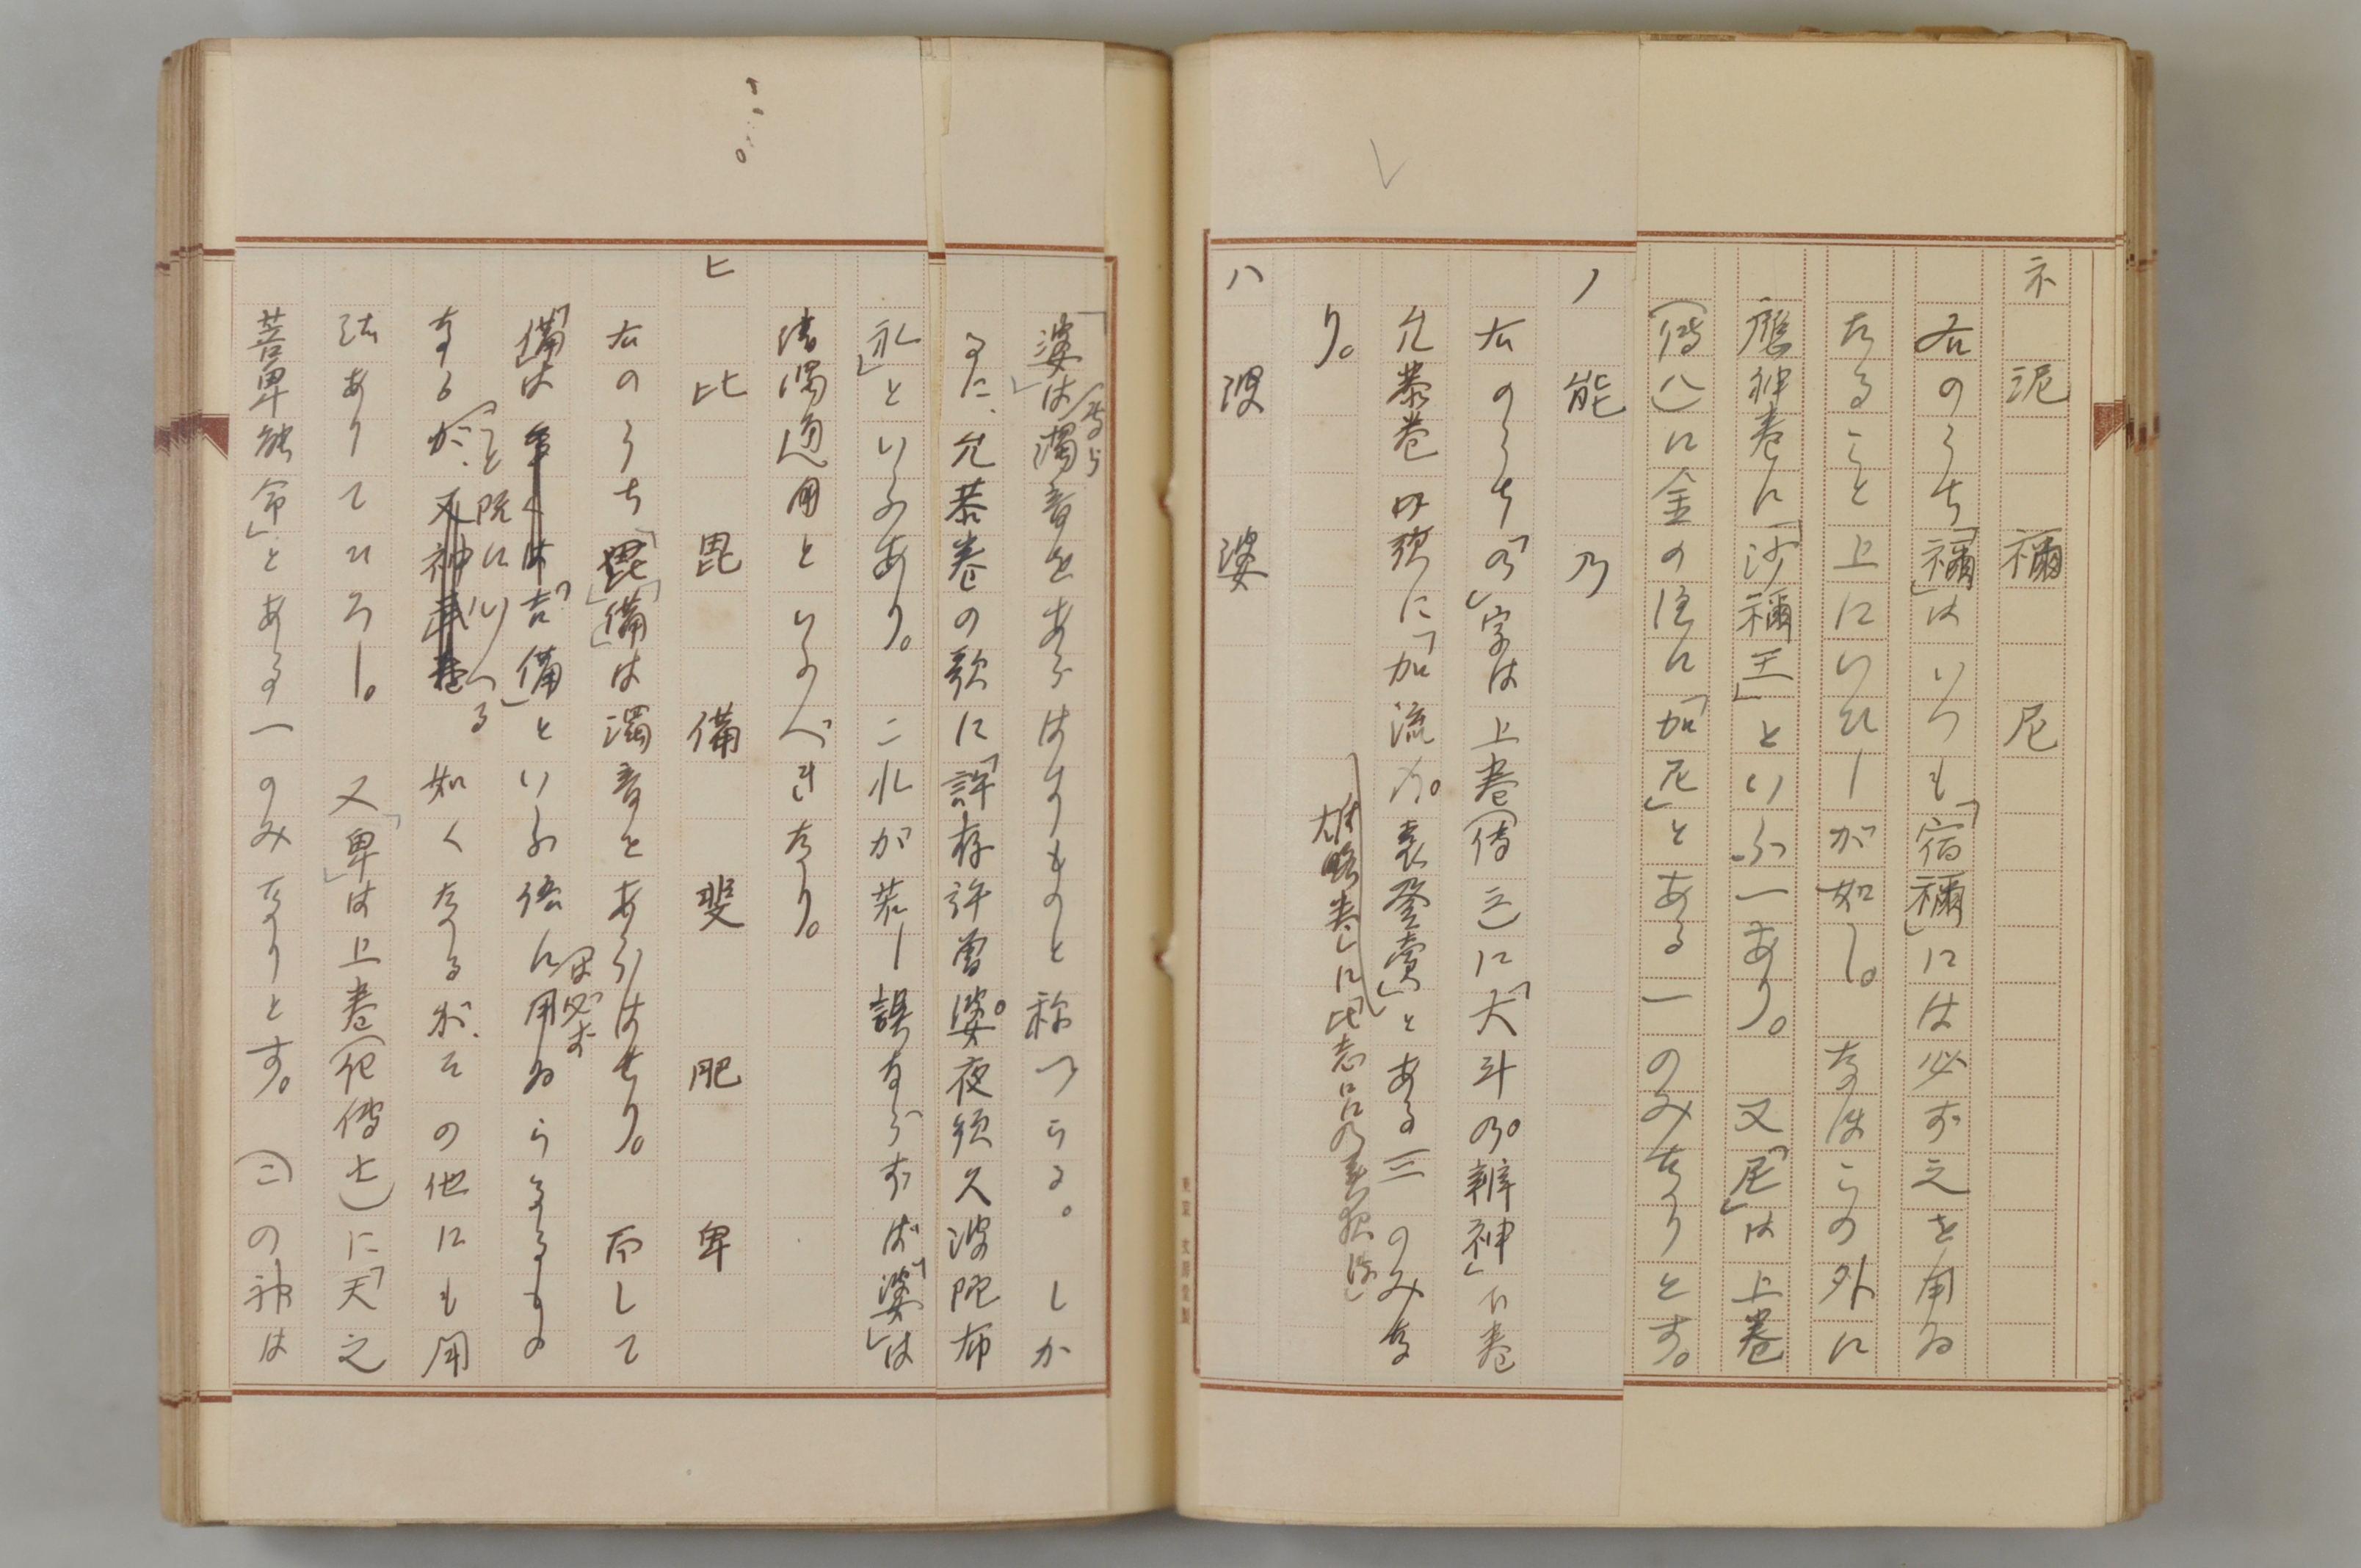 ネ 泥 禰 尼
右のうち「禰」はいつも「宿禰」には必ず之を用ゐ
たること上にいひしが如し。なほこの外に
應神巻に「沙禰王」といふ一あり。又「尼」は上巻
(傳八)に金の注に「加尼」とある一のみなりとす。
ノ 能 乃
右のうち「乃」字は上巻(傳 )に「大斗乃辨神」下巻
允恭巻 に「加流乃 袁登賣」とある三のみな
雄略巻に「比志呂乃美夜波」
り。
ハ 波 婆
「婆」は専ら濁音をあらはすものと称へらる。しか
るに、允恭巻の歌に「許存許曽婆夜須久波陀布
礼」といふあり。これが若し誤ならずば「婆」は
清濁通用といふべきなり。
ヒ 比 毘 備 斐 肥 卑
右のうち「毘」「備」は濁音をあらはせり。而して
「備」は「吉備」といふ語には必ず用ゐらるるもの
なること既にいへるが如くなるが、その他にも用
法ありてひろし。又「卑」は上巻(記傳七)に「天之
菩卑能命」とある一のみなりとす。(この神は